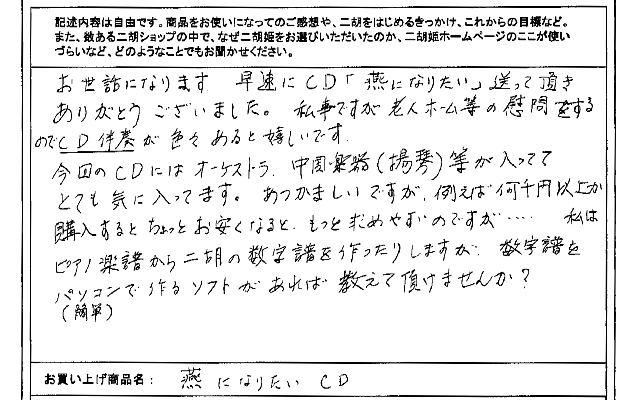 記述内容は自由です。商品をお使いになってのご感想や、二胡をはじめるきっかけ、これからの目標など。
また、数ある二胡ショップの中で、なぜ二胡姫をお選びいただいたのか、二胡姫ホームページのここが使い
づらいなど、どのようなことでもお聞かせください。
お世話になります 早速にCD「燕になりたい」送って頂き
ありがとうございました。 私事ですが老人ホーム等の慰問をする
のでCD伴奏が色々あると嬉しいです.
今回のCDにはオーケストラ、中国楽器(揚琴)等が入ってて
とても気に入ってます。あつかましいですが、例えば何千円以上か
購入するとちょっとお安くなると、もっと求めやすいのですが…… 私は
ピアノ楽譜から二胡の数字譜を作ったりしますが、数字譜を
パソコンで作るソフトがあれば教えて頂けませんか?
(簡単)
お買い上げ商品名: 燕になりたい CD